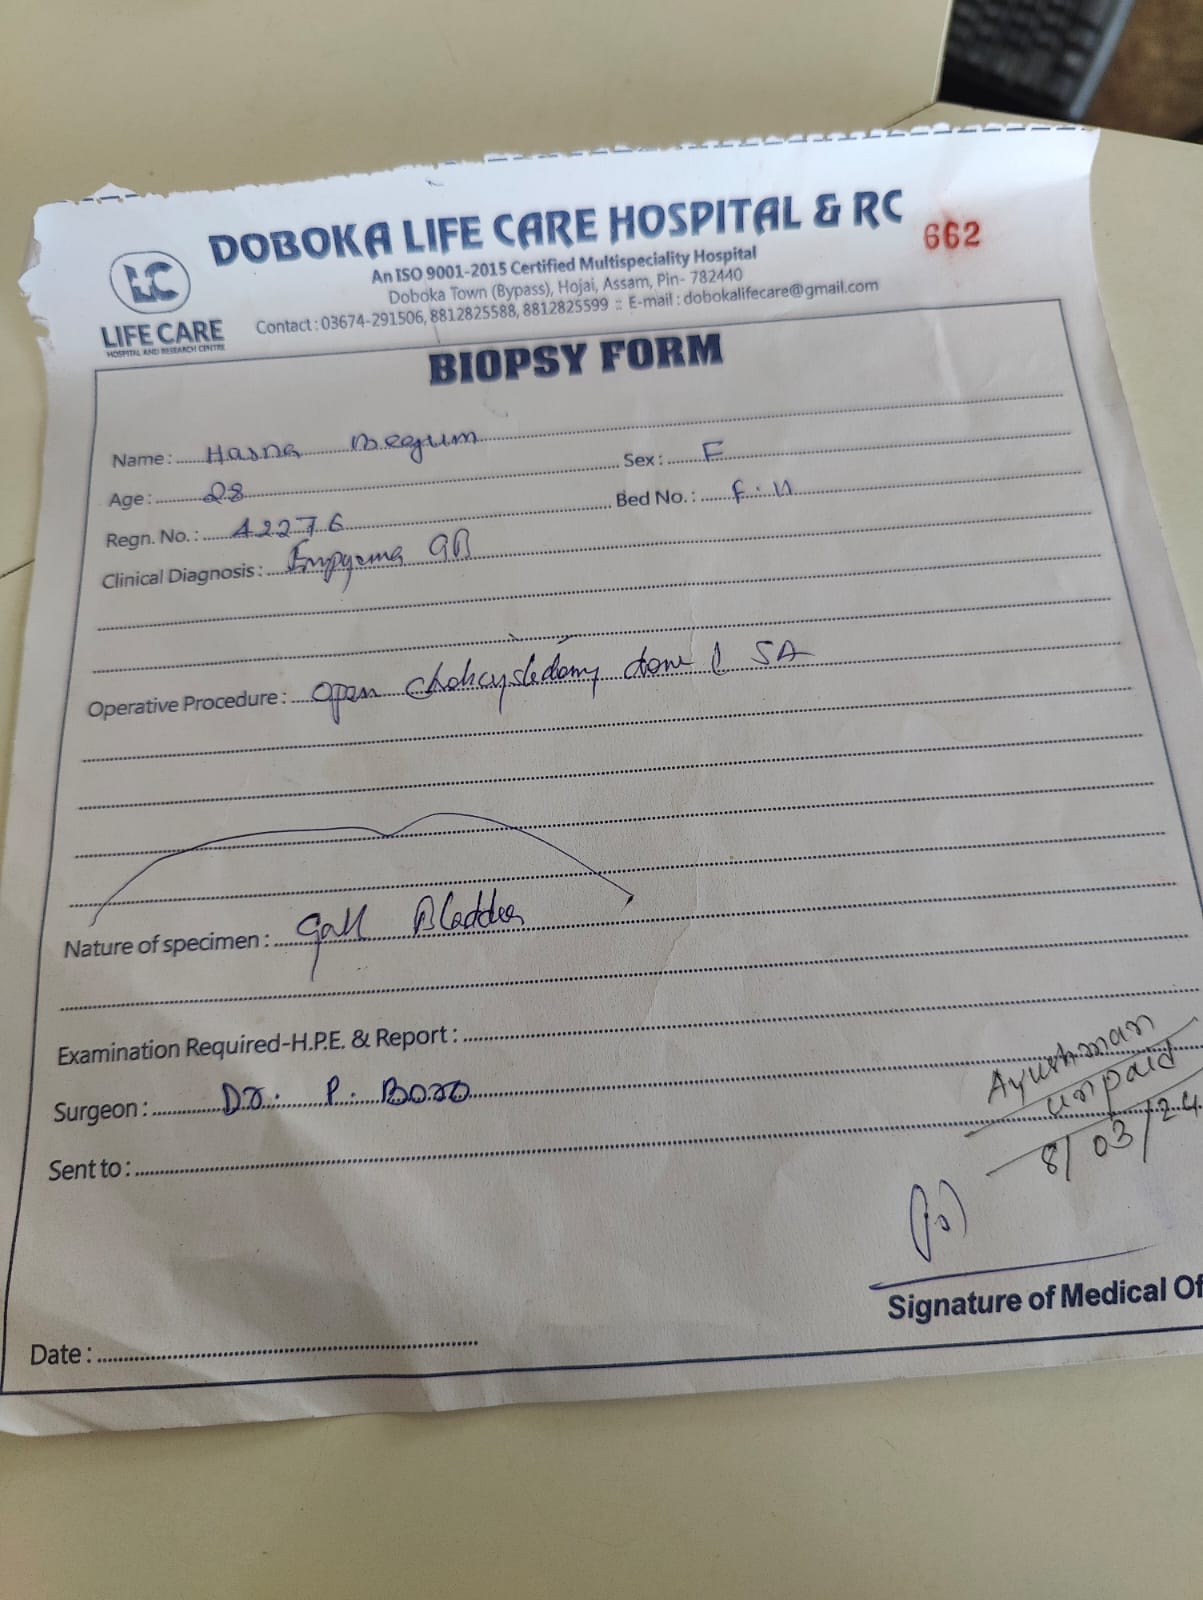 DOBOKA LIFE CARE HOSPITAL & RC
662
An ISO 9001-2015 Certified Multispeciality Hospital
Doboka Town (Bypass), Hojai, Assam, Pin- 782440
Contact : 03674-291506, 8812825588, 8812825599 :: E-mail : dobokalifecare@gmail.com
LC
LIFE CARE
HOSPITAL AND RESEARCH CENTRE
BIOPSY FORM
Name : Hasna Begum
Age : 28 Sex : F
Regn. No. : 42276 Bed No. : F.
Clinical Diagnosis : Empyema GB
Operative Procedure : Open Cholecystectomy done SA
Nature of specimen : Gall Bladder
Examination Required-H.P.E. & Report :
Surgeon : Dr. P. Boro
Sent to :
Ayushman
unpaid
8/03/24
Signature of Medical Of
Date :